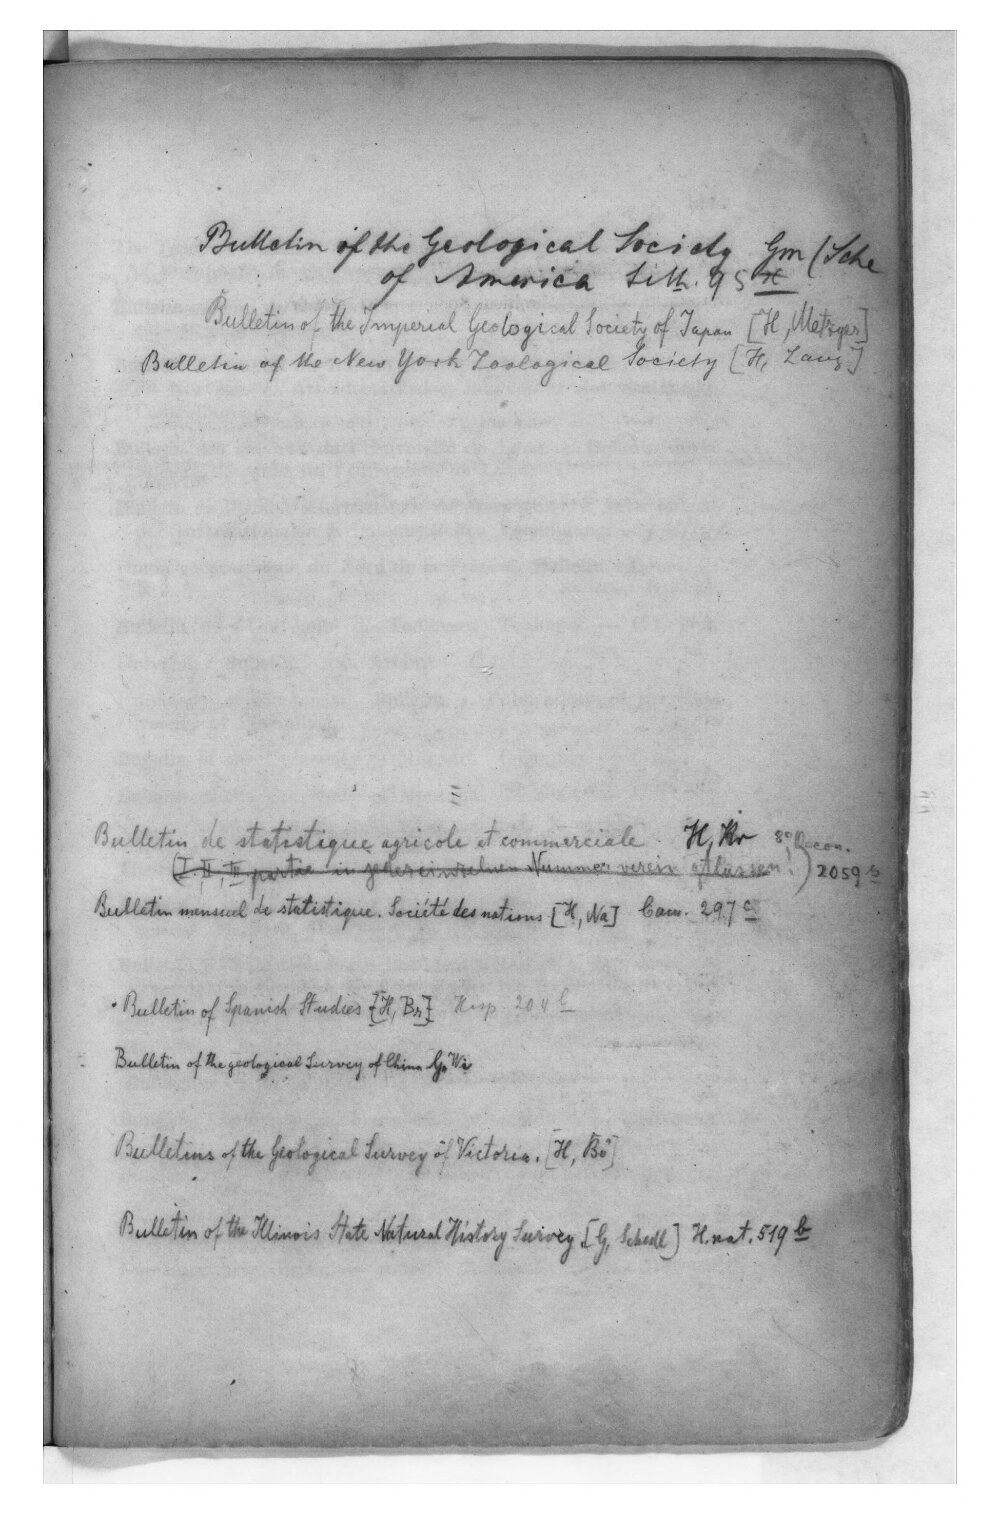 Bulletin of the Geological Society Gm (Sche
of America Lith. 95 H
Bulletin of the Imperial Geological Society of Japan [H, Metzger]
Bulletin of the New York Zoological Society [H, Lang.]
Bulletin de statistique agricole et commerciale H, Kr 8° Oecon.
(I, II, III partie in jeder einzelnen Nummer verein !) 2059 b
Bulletin mensuel de statistique. Société des nations [H, Na] Cam. 297 c
Bulletin of Spanish Studies [H, Br] Hisp. 204 l
Bulletin of the geological Survey of China G, Wi
Bulletins of the Geological Survey of Victoria. [H, Bö]
Bulletin of the Illinois State Natural History Survey [G, Schedl] H.nat. 519 b